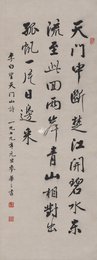 天门中断楚江開碧水东
流至此回兩岸青山相對出
孤帆一片日邊来
李白望天门山詩一九七九年元旦